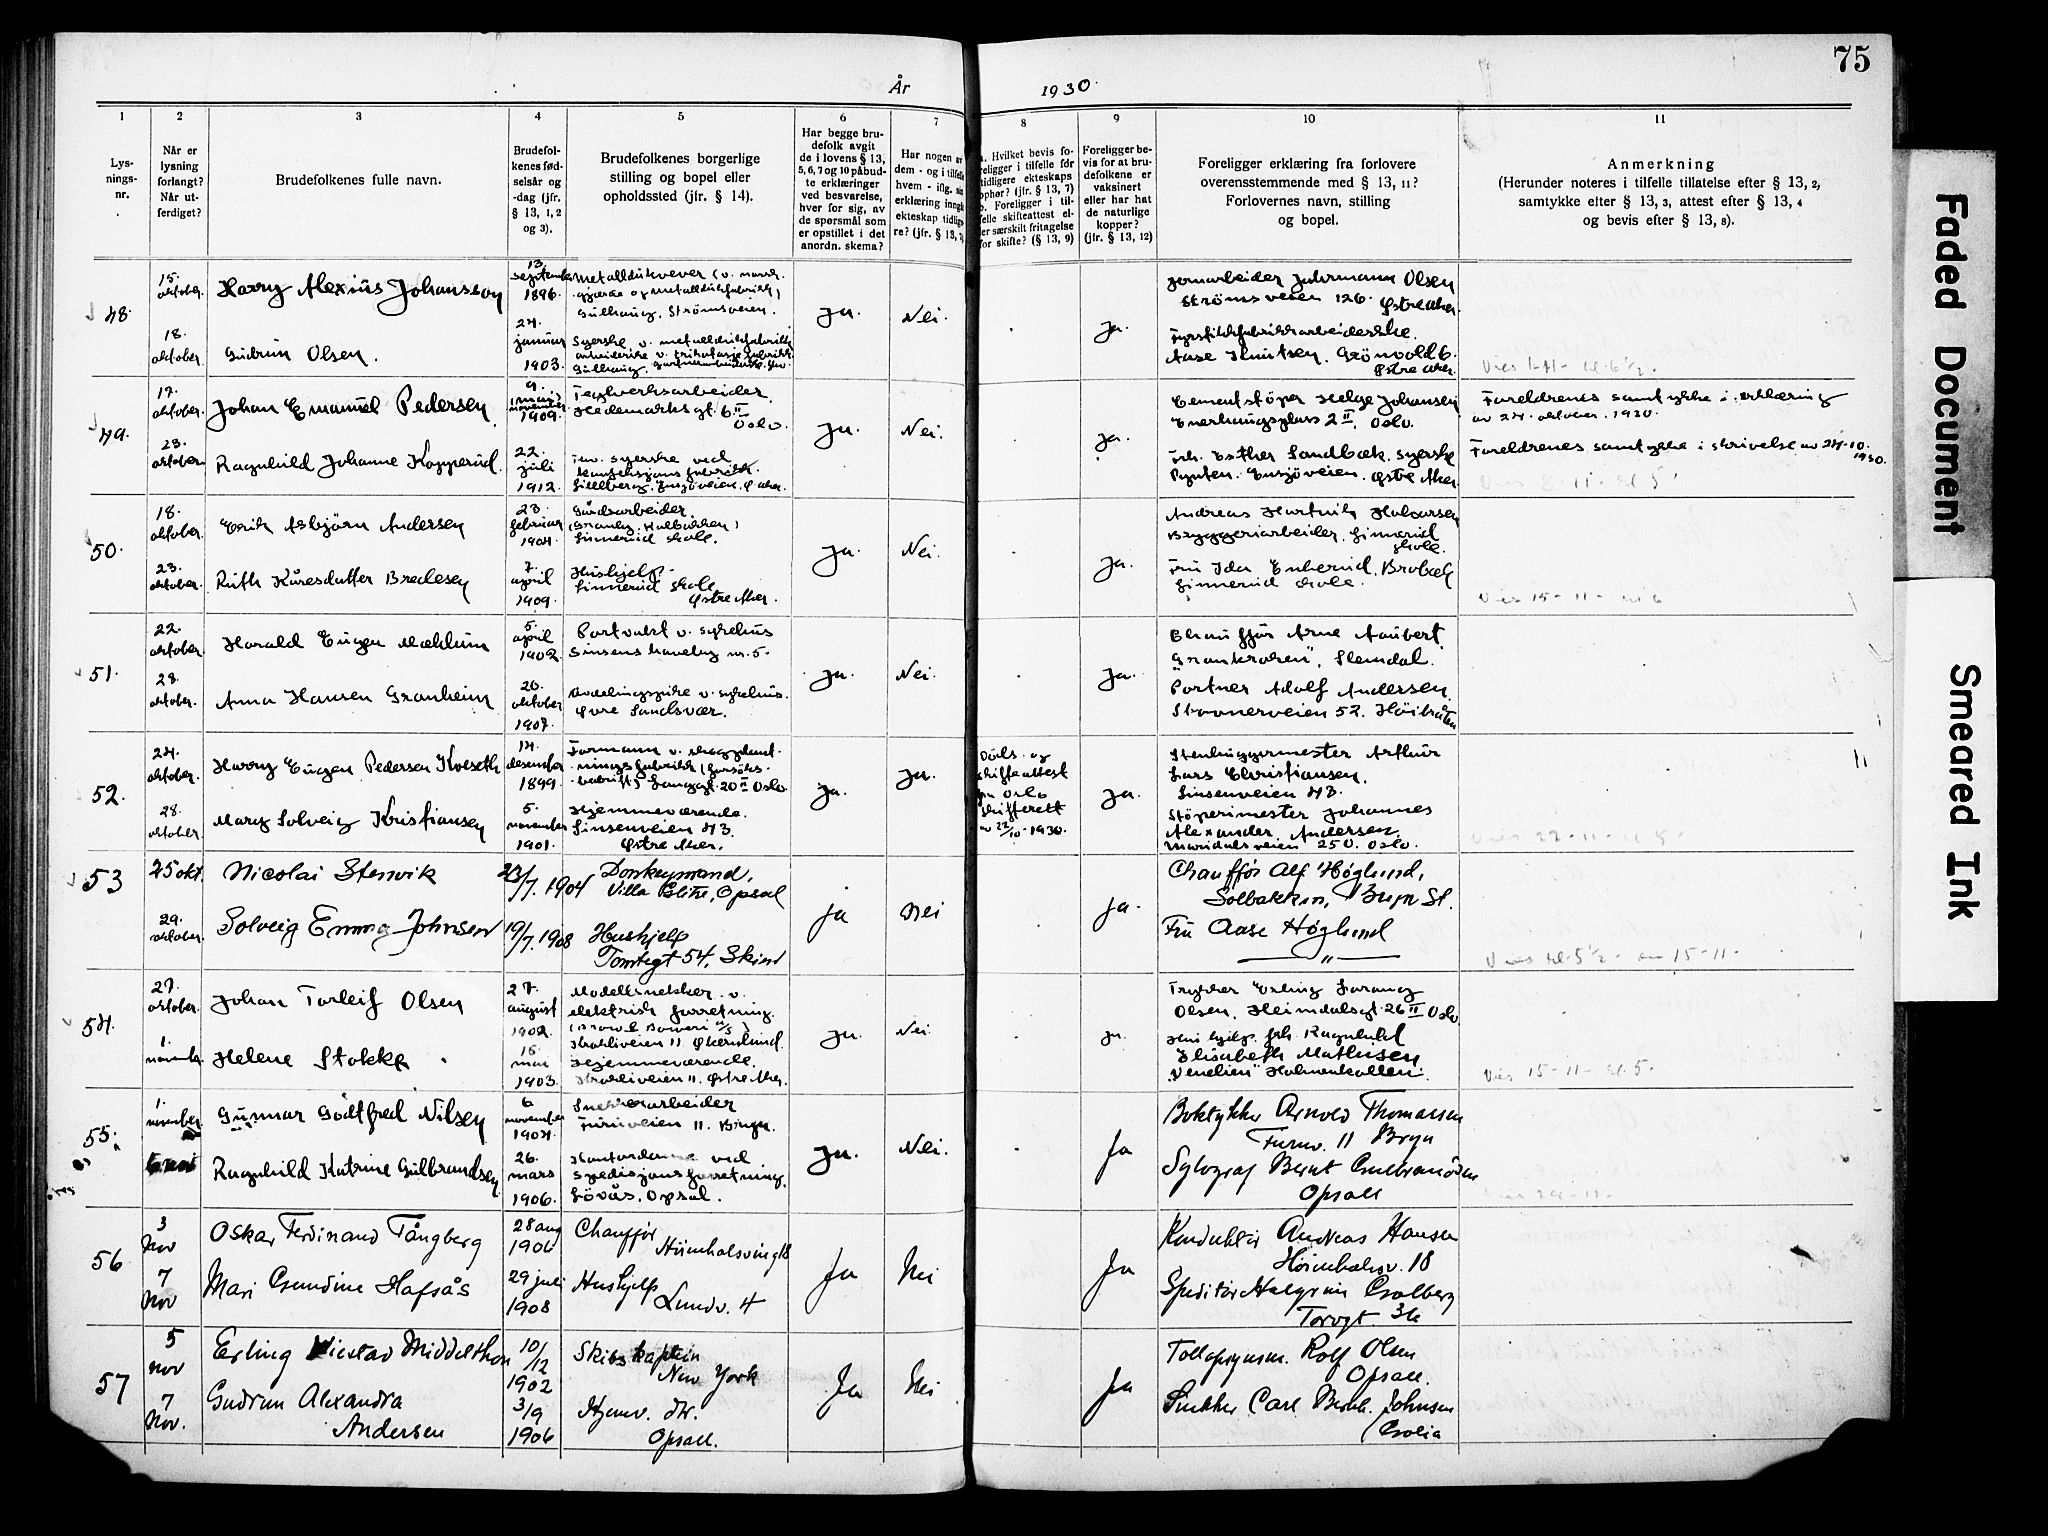 75
År 1930.
1 2 3 4 5 6 7 8 9 10 11
Lys-
nings-
nr.
Når er
lysning
forlangt?
Når ut-
ferdiget?
Brudefolkenes fulle navn.
Brudefol-
kenes fød-
selsår og
-dag (jfr.
§ 13, 1, 2
og 3).
Brudefolkenes borgerlige
stilling og bopel eller
opholdssted (jfr. § 14).
Har begge bru-
defolk avgit
de i lovens § 13,
5, 6, 7 og 10 påbud-
te erklæringer
ved besvarelse,
hver for sig, av
de spørsmål som
er opstillet i det
anordn. skema?
Har nogen av
dem - og i tilfelle
hvem - iflg. sin
erklæring inngått
ekteskap tidlige-
re? (jfr. § 13,
a. Hvilket bevis fo-
religger i tilfelle for
tidligere ekteskaps
ophør? (jfr. § 13, 7)
b. Foreligger i til-
felle skifteattest el-
ler særskilt fritagelse
for skifte? (§ 13, 9)
Foreligger be-
vis for at bru-
defolkene er
vaksinert
eller har hat
de naturlige
kopper?
(jfr. § 13, 12)
Foreligger erklæring fra forlovere
overensstemmende med § 13, 11?
Forlovernes navn, stilling
og bopel.
Anmerkning
(Herunder noteres i tilfelle tillatelse efter § 13, 2,
samtykke efter § 13, 3, attest efter § 13, 4
og bevis efter § 13, 8).
48.
15.
oktober.
18.
oktober.
Harry Alexius Johansson
Gudrun Olsen.
13.
september
1896.
24.
januar
1903.
Ja. Nei. Ja.
Jernarbeider Julrmann Olsen
Strömsveien 126. Østre Aker.
Fyrstikkfabrikkarbeiderske
Aase Knutsen. Grönvold 6.
Østre Aker.
49.
17.
oktober.
23.
oktober.
Johan Emanuel Pedersen
Ragnhild Johanne Kopperud.
9.
(mai)
november
1909.
22.
juli
1912.
Teglverksarbeider.
Hedemarksgt. 6 II
Oslo.
Ja. Nei. Ja.
Cementstöper Helge Johansen
Enerhaugsplass 2 II, Oslo.
Frk. Esther Sandbæk. syerske
Pynten. Ensjöveien. Østre Aker.
Foreldrenes samtykke i erklæring
av 24. oktober. 1930.
Foreldrenes samtykke i skrivelse av 24-10.
1930.
50.
18.
oktober.
23.
oktober.
Erik Asbjörn Andersen
Ruth Kåresdatter Bredesen
23.
februar
1904.
7.
april
1909.
Gårdsarbeider
Hushjelp.
Østre Aker.
Ja. Nei. Ja.
Andreas Hartvik Halvorsen
Bryggeriarbeider.
Fru Ida Enberud, Brobæk
Vies 15-11- kl 6
51.
22.
oktober.
28.
oktober.
Harald Eugen Mæhlum
Anna Hansen Granheim
5.
april
1902.
20.
oktober
1907.
Portvakt v. sykehus
Sinsens haveby nr. 5.
Avdelingspike v. sykehus.
Øvre Sandsvær.
Ja. Nei. Ja.
Chauffør Arne Aubert.
"Grankroken", Slemdal.
Portner Adolf Andersen.
Stavnerveien 52. Höibråten
52.
24.
oktober.
28.
oktober.
Harry Eugen Pedersen Kveseth
Mary Solveig Kristiansen
14.
desember
1899.
5.
november
1901.
Hjemmeværende.
Sinsenveien 43.
Østre Aker.
Ja. Ja.
Döds- og
skifteattest
fra Oslo
skifterett
av 22/10-1930.
Ja.
Stenhuggermester Arthur
Lars Christiansen.
Sinsenveien 43.
Stöperimester Johannes
Alexander Andersen.
Maridalsveien 250. Oslo.
53
25 okt.
29.
oktober.
Nicolai Stenvik
Solveig Emma Johnsen
23/7. 1904
19/7. 1908
Donkeymand,
Villa Blitze, Opsal
Hushjelp
Tomtegt 54, Skien
ja nei ja.
Chauffør Alf Høglund,
Solbakken, Bryn St.
Fru Aase Høglund
— " —
Vies kl. 5 1/2 - en 15-11-
54.
27.
oktober.
1.
november.
Johan Torleif Olsen
Helene Stokke
27.
august
1902.
15.
mai
1903.
Modellsnekker v.
elektrisk forretning.
(Brown Boweri A/S)
Hjemmeværende.
Ja. Nei. Ja.
Trykker Erling Sarang
Olsen. Heimdalsgt. 26 II Oslo
Hushjelp frk. Ragnhild
Elisabeth Mathisen
"Venelien" Holmenkollen.
Vies 15-11- kl. 5.
55.
1.
november.
Gunnar Godtfred Nilsen
Ragnhild Katrine Gulbrandsen
6
november
1904.
26.
mars
1906.
Snekkerarbeider
Furuveien 11. Bryn.
Kontordame ved
spedisjonsforretning.
Lövås, Opsal.
Ja. Nei. Ja
Boktykker Arnold Thomassen
Furuv. 11 Bryn
Sylograf Bernt Gulbrandsen
Opsal
Vies 29-11-
56
3
Nov
7
Nov
Oskar Ferdinand Tångberg
Mari Gundine Hafsås
28 aug
1906
29 juli
1908
Chauffør
Høienhalsving 18
Hushjelp
Lundv. 4
Ja Nei Ja
Konduktør Andreas Hansen
Høienhalsv. 18
Speditør Halgrim Golberg
Torvgt. 36
57
5
nov
7
Nov.
Erling Viestad Middelthon
Gudrun Alexandra
Andersen
10/12
1902
3/9
1906
Skibskaptein
New York
Hjemv. dtr.
Opsal.
Ja Nei Ja
Tollopsynsm. Rolf Olsen
Opsal.
Snekker Carl Bernh. Johnsen
Golia
Faded Document
Smeared Ink